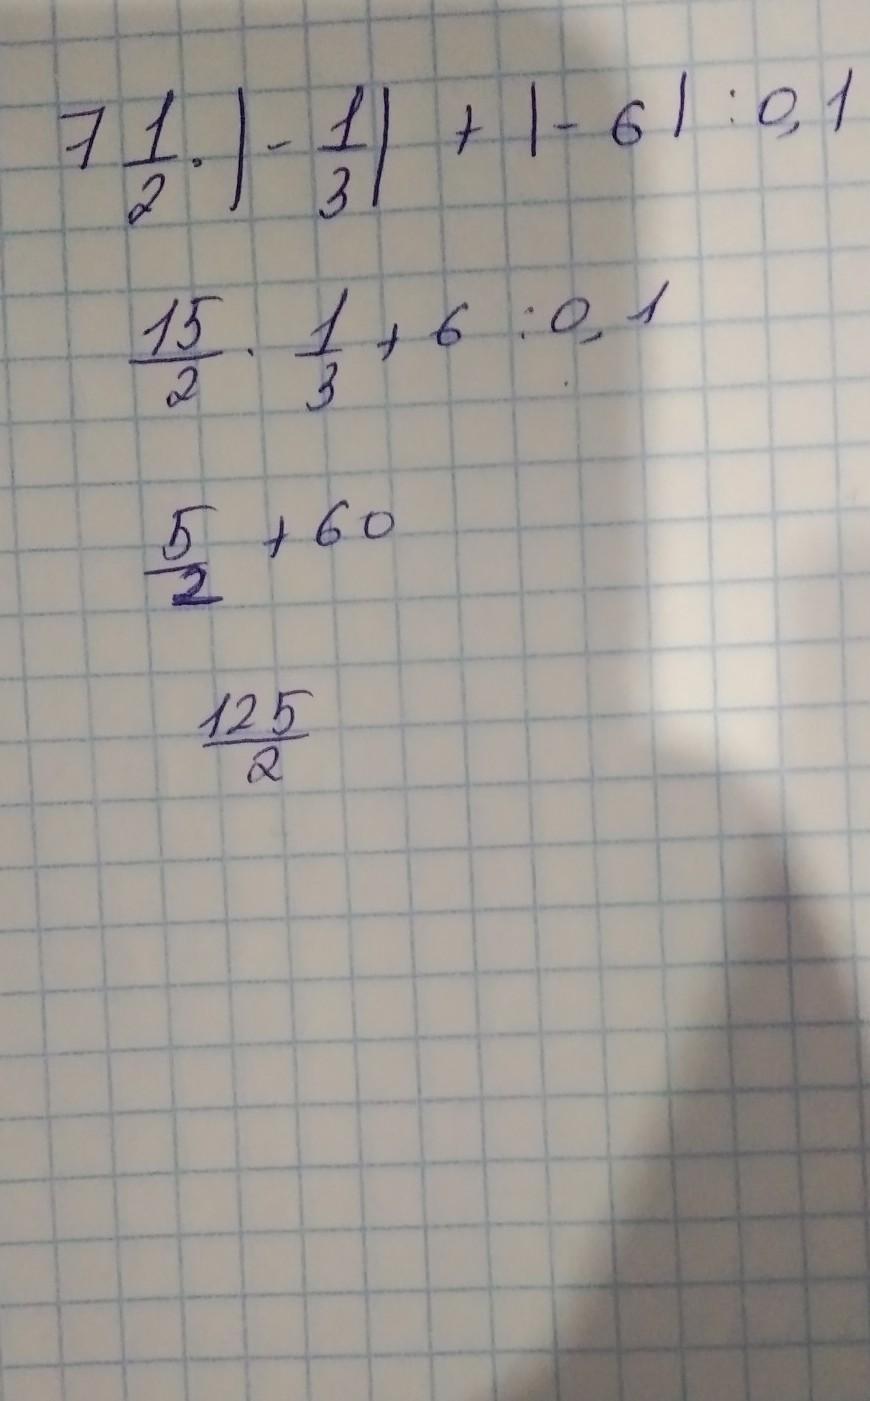 7 1/2 · |- 1/3| + |- 6| : 0,1
15/2 · 1/3 + 6 : 0,1
5/2 + 60
125/2